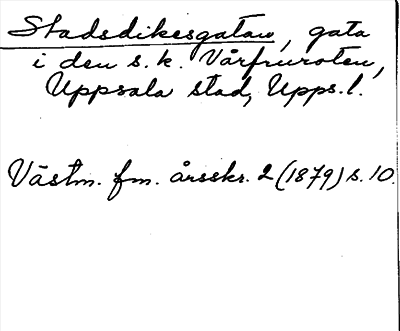 Stadsdikesgatan, gata
i den s.k. Vårfruroten,
Uppsala stad, Upps.l.
Västm. fm. årsskr. 2 (1879) s. 10.